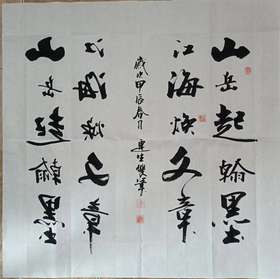 山岳起翰墨
江海焕文章
歲次甲辰春月
建生雙筆
江海焕文章
山岳起翰墨